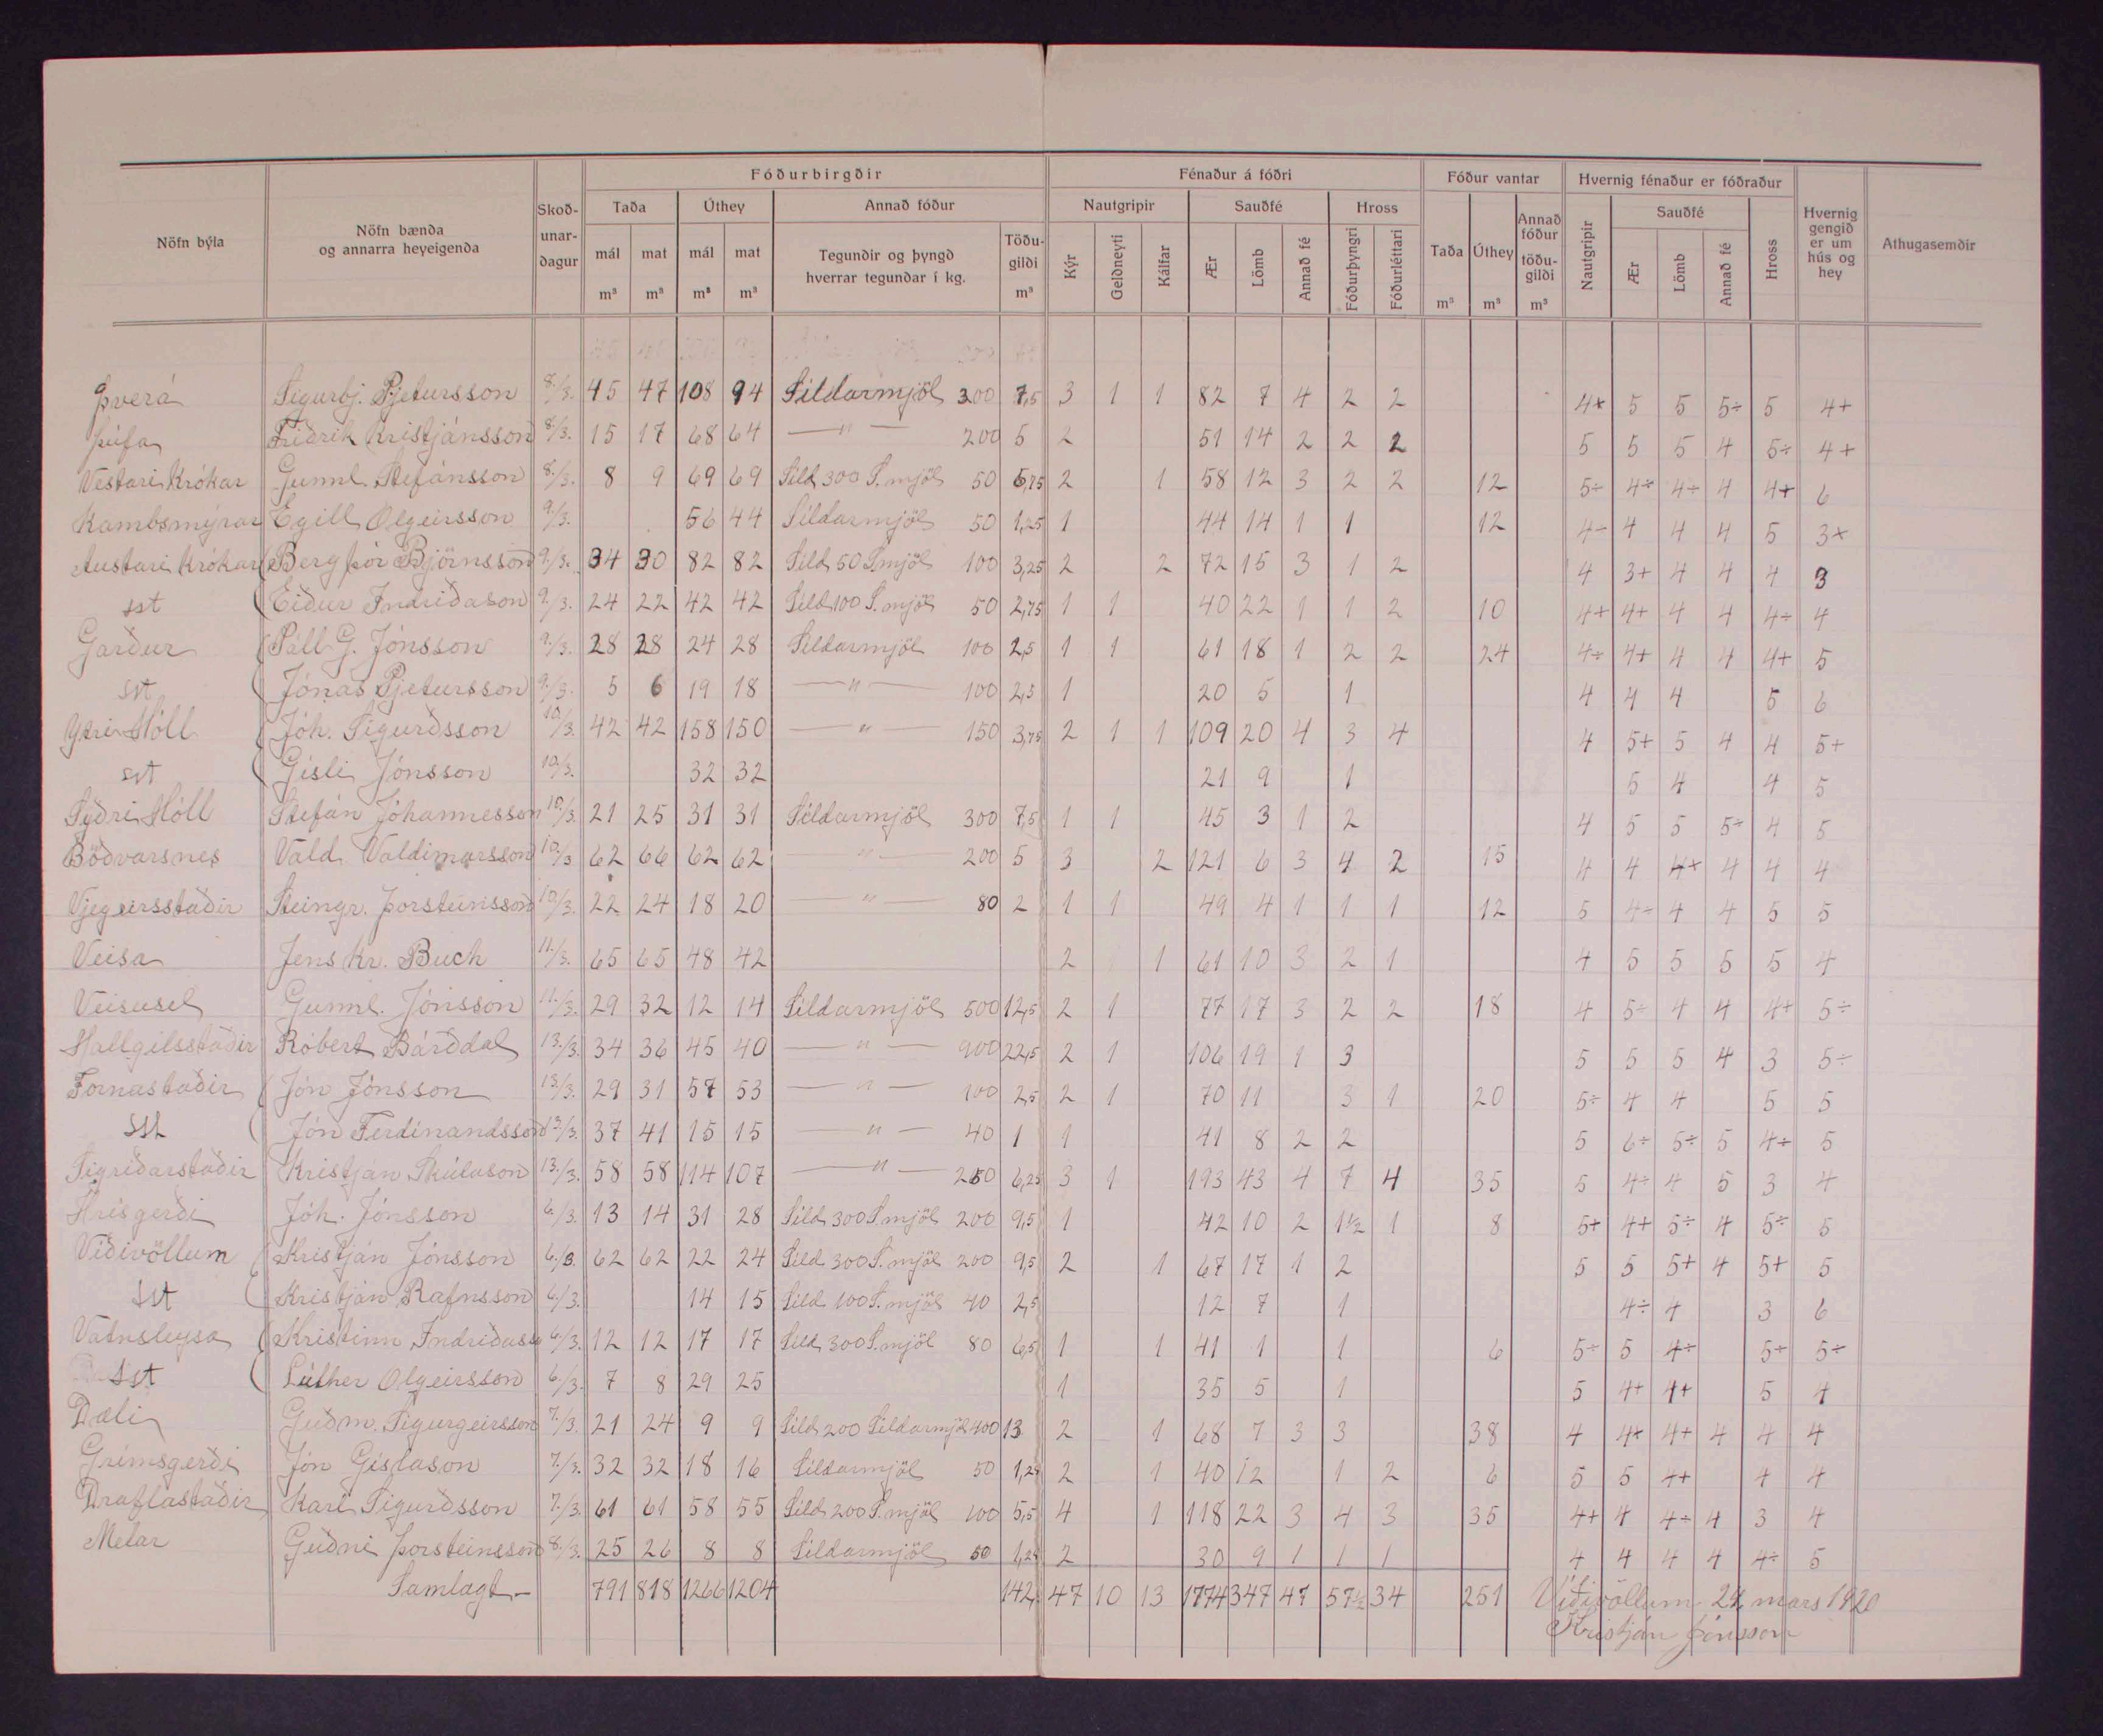 Fóðurbirgðir Fénaður á fóðri Fóður vantar Hvernig fénaður er fóðraður
Nöfn býla Nöfn bænda og annarra heyeigenda Skoð-unar-dagur Taða Úthey Annað fóður Nautgripir Sauðfé Hross Taða Úthey Annað fóður töðu-gildi Nautgripir Sauðfé Hross Hvernig gengið er um hús og hey Athugasemdir
mál mat mál mat Tegundir og þyngd hverrar tegundar í kg. Töðu-gildi Kýr Geldneyti Kálfar Ær Lömb Annað fé Fóðurþyngri Fóðurléttari Ær Lömb Annað fé
m³ m³ m³ m³ m³ m³ m³ m³
Þverá Sigurbj. Pjetursson 8/3. 45 47 108 94 Síldarmjöl 300 7,5 3 1 1 82 7 4 2 2 4+ 5 5 5÷ 5 4+
Þúfa Friðrik Kristjánsson 8/3. 15 17 68 64 —"— 200 5 2 51 14 2 2 2 5 5 5 4 5÷ 4+
Vestari Krókar Gunnl. Stefánsson 8/3. 8 9 69 69 Síld 300 S. mjöl 50 6,75 2 1 58 12 3 2 2 12 5÷ 4+ 4÷ 4 4+ 6
Kambsmýrar Egill Olgeirsson 9/3. 56 44 Síldarmjöl 50 1,25 1 44 14 1 1 12 4÷ 4 4 4 5 3+
Austari Krókar Bergþór Björnsson 9/3. 34 30 82 82 Síld 50 S.mjöl 100 3,25 2 2 72 15 3 1 2 4 3+ 4 4 4 3
sst Eiður Indriðason 9/3. 24 22 42 42 Síld 100 S.mjöl 50 2,75 1 1 40 22 1 1 2 10 4+ 4+ 4 4 4÷ 4
Garður Páll G. Jónsson 9/3. 28 28 24 28 Síldarmjöl 100 2,5 1 1 61 18 1 2 2 24 4÷ 4+ 4 4 4+ 5
sst Jónas Pjetursson 9/3. 5 6 19 18 —"— 100 2,5 1 20 5 1 4 4 4 5 6
Ytri Hóll Jóh. Sigurðsson 10/3. 42 42 158 150 —"— 150 3,75 2 1 1 109 20 4 3 4 4 5+ 5 4 4 5+
sst Gísli Jónsson 10/3. 32 32 21 9 1 5 4 4 5
Syðri Hóll Stefán Jóhannesson 10/3. 21 25 31 31 Síldarmjöl 300 7,5 1 1 45 3 1 2 4 5 5 5÷ 4 5
Böðvarsnes Vald. Valdimarsson 10/3 62 66 62 62 —"— 200 5 3 2 121 6 3 4 2 15 4 4 4+ 4 4 4
Vjegeirsstaðir Steingr. Þorsteinsson 10/3. 22 24 18 20 —"— 80 2 1 1 49 4 1 1 1 12 5 4÷ 4 4 5 5
Veisa Jens Kr. Buch 11/3. 65 65 48 42 2 1 61 10 3 2 1 4 5 5 5 5 4
Veisusel Gunnl. Jónsson 11/3. 29 32 12 14 Síldarmjöl 500 12,5 2 1 77 17 3 2 2 18 4 5÷ 4 4 4+ 5÷
Hallgilsstaðir Róbert Bárðdal 13/3. 34 36 45 40 —"— 900 22,5 2 1 106 19 1 3 5 5 5 4 3 5÷
Fornastaðir Jón Jónsson 13/3. 29 31 57 53 —"— 100 2,5 2 1 70 11 3 1 20 5÷ 4 4 5 5
sst Jón Ferdínandsson 13/3. 37 41 15 15 —"— 40 1 1 41 8 2 2 5 6÷ 5÷ 5 4÷ 5
Sigríðarstaðir Kristján Skúlason 13/3. 58 58 114 107 —"— 250 6,25 3 1 193 43 4 7 4 35 5 4÷ 4 5 3 4
Hrísgerði Jóh. Jónsson 6/3. 13 14 31 28 Síld 300 S.mjöl 200 9,5 1 42 10 2 1½ 1 8 5+ 4+ 5÷ 4 5÷ 5
Víðivöllum Kristján Jónsson 6/3. 62 62 22 24 Síld 300 S.mjöl 200 9,5 2 1 67 17 1 2 5 5 5+ 4 5+ 5
sst Kristján Rafnsson 6/3. 14 15 Síld 100 S.mjöl 40 2,5 12 7 1 4÷ 4 3 6
Vatnsleysa Kristinn Indriðass 6/3. 12 12 17 17 Síld 300 S.mjöl 80 6,5 1 1 41 1 1 6 5÷ 5 4÷ 5+ 5÷
sst Lúther Olgeirsson 6/3. 7 8 29 25 1 35 5 1 5 4+ 4+ 5 4
Dæli Guðm. Sigurgeirsson 7/3. 21 24 9 9 Síld 200 Síldarmjöl 400 13 2 1 68 7 3 3 38 4 4+ 4+ 4 4 4
Grímsgerði Jón Gíslason 7/3. 32 32 18 16 Síldarmjöl 50 1,25 2 1 40 12 1 2 6 5 5 4+ 4 4
Draflastaðir Karl Sigurðsson 7/3. 61 61 58 55 Síld 200 S.mjöl 100 5,5 4 1 118 22 3 4 3 35 4+ 4 4÷ 4 3 4
Melar Guðni Þorsteinsson 8/3. 25 26 8 8 Síldarmjöl 50 1,25 2 30 9 1 1 1 4 4 4 4 4÷ 5
Samlagt - 791 818 1266 1204 142, 47 10 13 1774 347 47 57½ 34 251 Víðivöllum 24 mars 1920
Kristján Jónsson